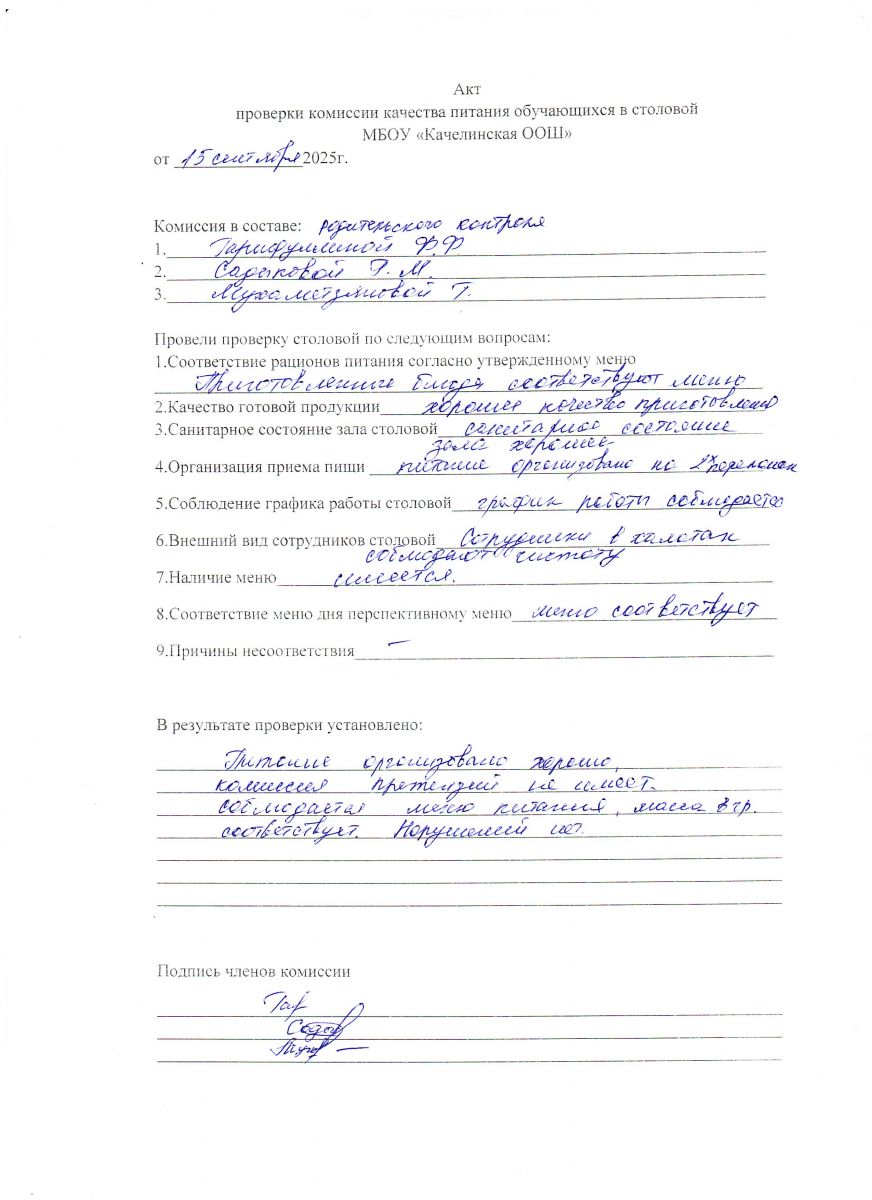 Акт
проверки комиссии качества питания обучающихся в столовой
МБОУ «Качелинская ООШ»
от 15 сентября 2025г.
Комиссия в составе: родительского контроля
1. Гарифуллиной Ф.Ф.
2. Садыковой Р.М.
3. Мухаметзяновой Г.
Провели проверку столовой по следующим вопросам:
1.Соответствие рационов питания согласно утвержденному меню
Приготовленные блюда соответствуют меню
2.Качество готовой продукции хорошее качество приготовлено
3.Санитарное состояние зала столовой санитарное состояние
зала хорошее
4.Организация приема пищи питание организовано на 2х переменах
5.Соблюдение графика работы столовой график работы соблюдается
6.Внешний вид сотрудников столовой Сотрудники в халатах
соблюдают чистоту
7.Наличие меню имеется.
8.Соответствие меню дня перспективному меню меню соответствует
9.Причины несоответствия –
В результате проверки установлено:
Питание организовано хорошо,
комиссия претензий не имеет.
соблюдается меню питания, масса в гр.
соответствует. Нарушений нет.
Подпись членов комиссии
Гар